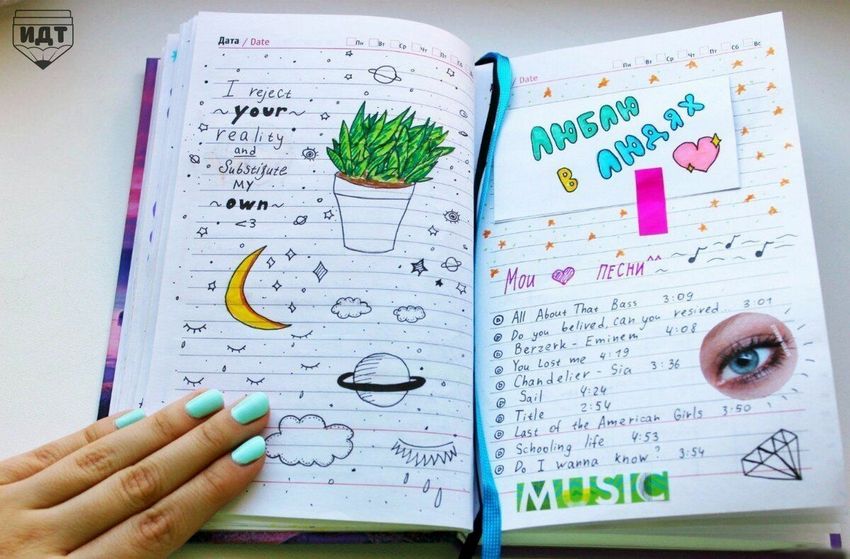 ИДТ
Дата / Date
Пн Вт Ср Чт Пт Сб Вс
I reject
~your~
reality
and
Substitute
MY
~own~
<3
Date
Пн Вт Ср Чт Пт Сб Вс
Люблю
в людях
Мои песни^^
All About That Bass 3:09
Do you belived, can you resived... 3:01
Berzerk - Eminem 4:08
You Lost me 4:19
Chandelier - Sia 3:36
Sail 4:24
Title 2:54
Last of the American Girls 3:50
Schooling life 4:53
Do I wanna know? 3:54
MUSIC